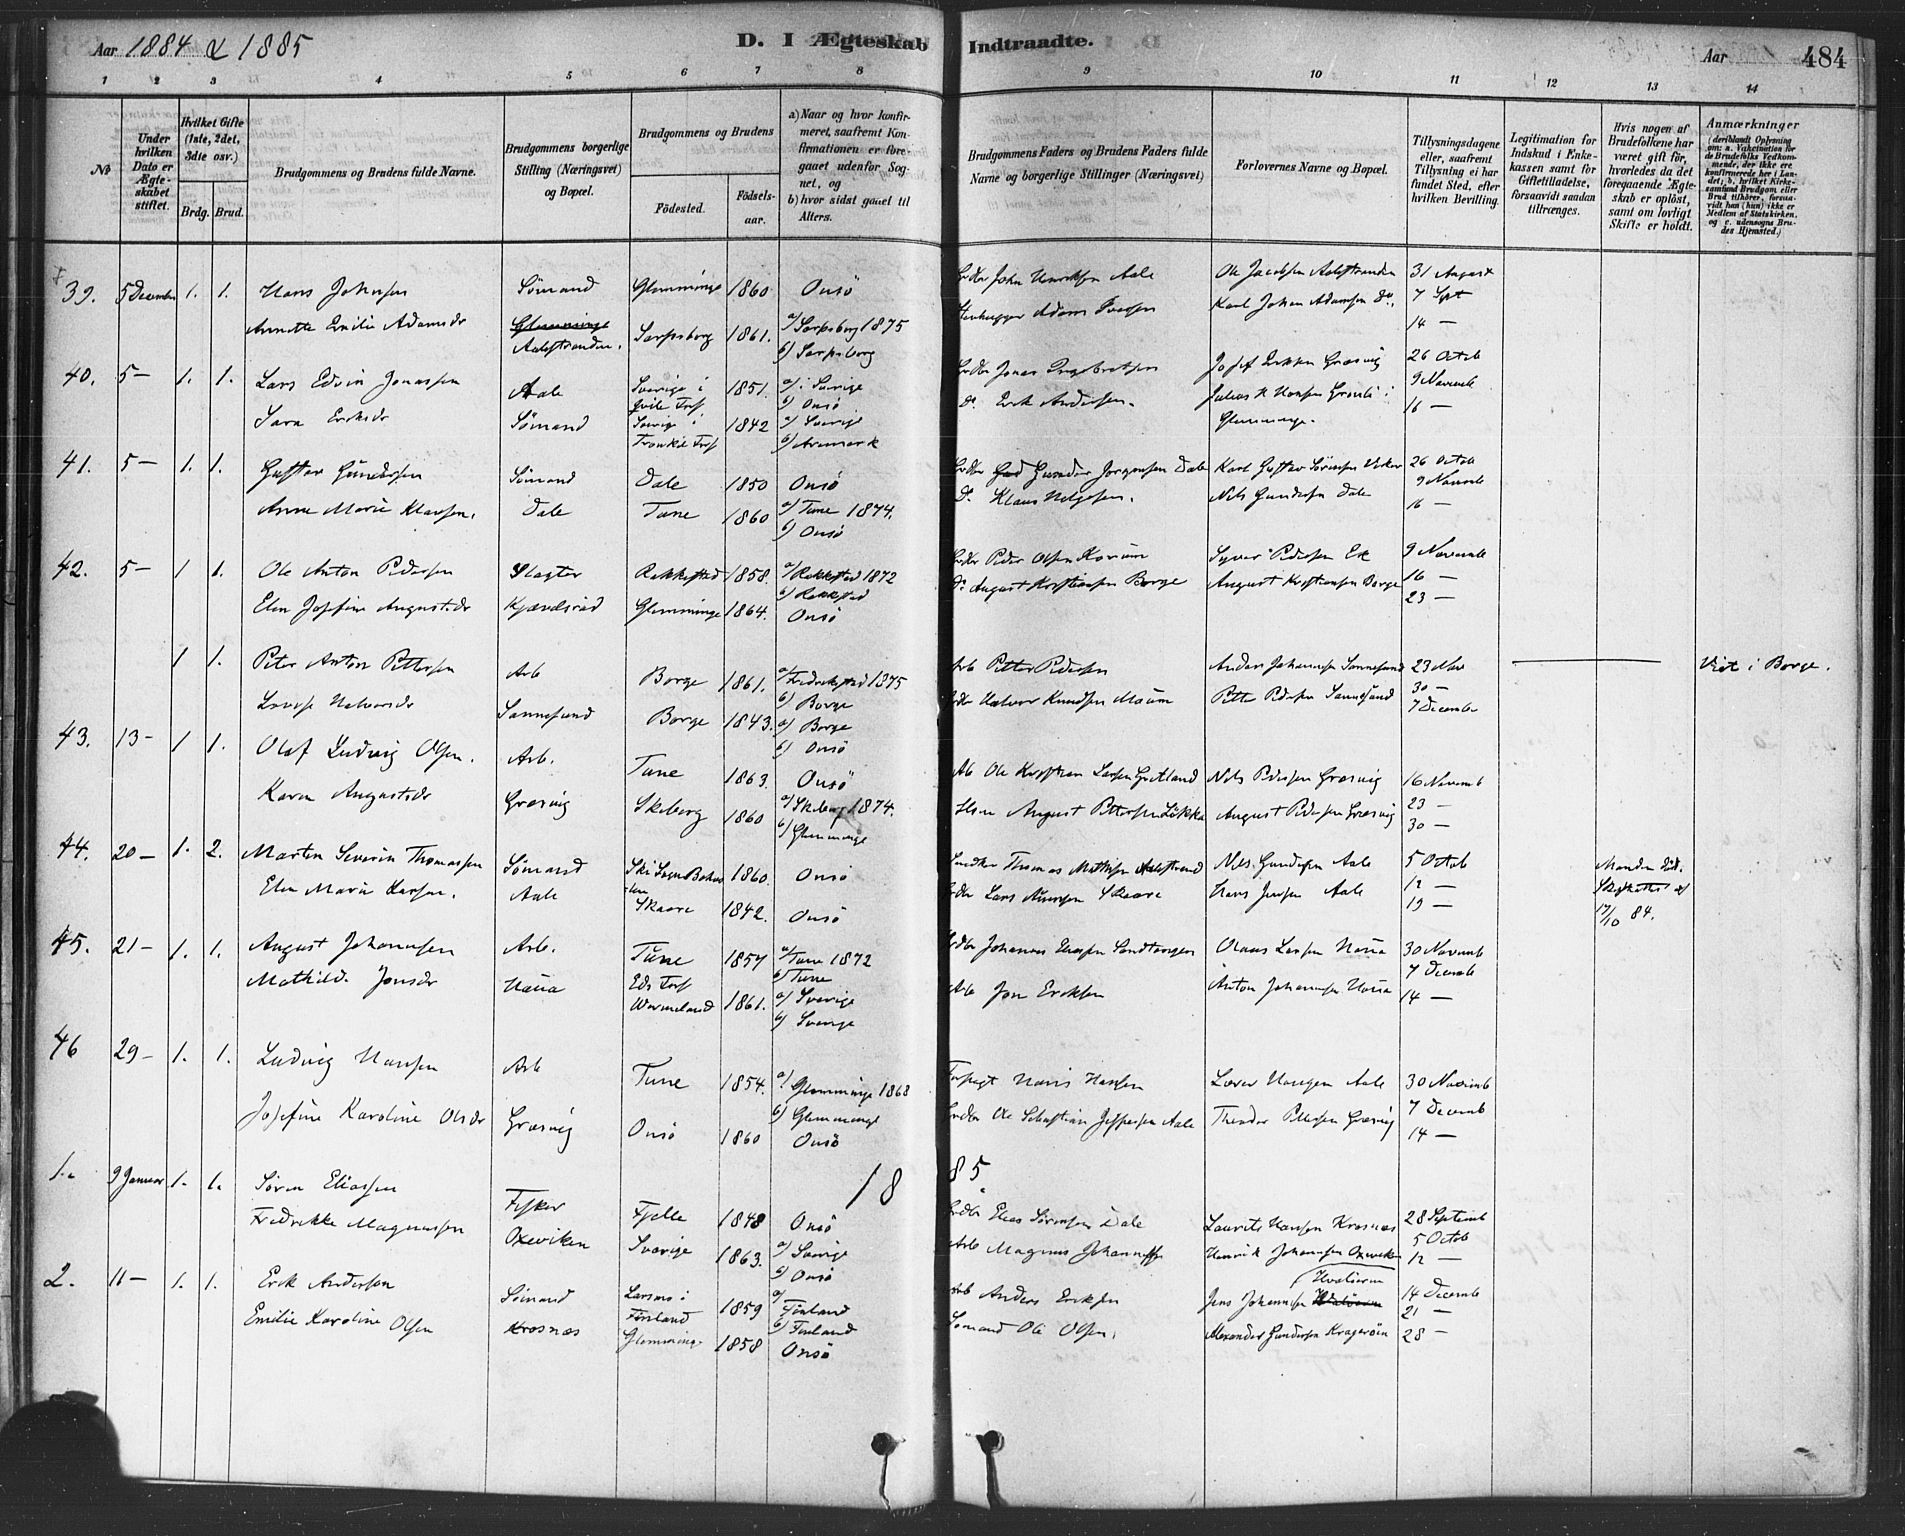 Aar 1884 & 1885
D. I Ægteskab Indtraadte.
Aar
484
1 2 3 4 5 6 7 8 9 10 11 12 13 14
No
Under hvilken Dato er Ægteskabet stiftet.
Hvilket Gifte (1ste, 2det, 3die osv.)
Brdg. Brud.
Brudgommens og Brudens fulde Navne.
Brudgommens borgerlige Stilling (Næringsvei) og Bopæl.
Brudgommens og Brudens
Fødested.
Fødselsaar.
a) Naar og hvor konfirmeret, saafremt Konfirmationen er foregaaet udenfor Sognet, og
b) hvor sidst gaaet til Alters.
Brudgommens Faders og Brudens Faders fulde Navne og borgerlige Stillinger (Næringsvei)
Forlovernes Navne og Bopæl.
Tillysningsdagene eller, saafremt Tillysning ei har fundet Sted, efter hvilken Bevilling.
Legitimation for Indskud i Enkekassen samt for Giftetilladelse, forsaavidt saadan tiltrænges.
Hvis nogen af Brudefolkene har været gift før, hvorledes da det foregaaende Ægteskab er opløst, samt om lovligt Skifte er holdt.
Anmærkninger
(deriblandt Oplysning om: a. Vakcination for de Brudefolks Vedkommende, der ikke ere konfirmerede her i Landet, b. hvilket Kirkesamfund Brudgom eller Brud tilhører, forsaavidt han (hun) ikke er Medlem af Statskirken, og c. udensogns Brudes Hjemsted.)
39. 5 December 1. 1. Hans Johnsen Sømand Glemminge 1860 Onsö Ole Jacobsen Aalestranden 31 August
Annette Emilie Adamsdr Glemminge Aalestranden. Sarpsborg 1861. a) Sarpsborg 1875 b) Sarpsborg Karl Johan Adamsen do. 7 Spt
14 —
40. 5 — 1. 1. Lars Edvin Jonassen Aale Sverige i 1851. a) i Sverige b) Onsö Jonas Engebretsen Josef Eriksen Græsvig 26 Octob
Sara Eriksdr Sømand Sverige i 1842 a) Sverige b) Aremark Do. Erik Andersen. Julius H Hansen i Glemminge. 9 Novemb
16 —
41. 5 — 1. 1. Gustav Gundersen Sømand Dale 1850 Onsö Gunder Jørgensen Dale Karl Gustav Sørensen 26 Octob
Anne Marie Klausen. Dale Tune 1860 a) Tune 1874. b) Onsö Do. Klaus Helgesen. Nils Gundersen Dale 9 Novemb
16 —
42. 5 — 1 1. Ole Anton Pedersen Slagter Rakkestad 1858. a) Rakkestad 1872 b) Rakkestad Peder Olsen Syver Pedersen Ek 9 Novemb
Elen Josefine Augustsdr Kjærdsrød Glemminge 1864. Onsö Do. August Kristiansen Borge August Kristiansen Borge 16 —
23 —
1 1. Peter Anton Pettersen Arb Borge 1861. a) Fredrikstad 1875 b) Borge Arb Petter Pedersen Anders Johannesen Sannesund 23 Nov
Lovise Halvorsdr Sannesund Borge 1843. a) Borge b) Onsö Halvor Knudsen Petter Pedersen Sannesund 30 —
7 Decemb
Viet i Borge.
43. 13 — 1 1. Olaf Ludvig Olsen. Arb. Tune 1863. Onsö Arb Ole Kristian Larsen Nils Pedersen Græsvig 16 Novemb
Karen Augustsdr Græsvig Skeberg 1860 a) Skeberg 1874. b) Glemminge August Pettersen Løkke August Pedersen Græsvig 23 —
30 —
44. 20 — 1. 2. Marten Severin Thomassen Sømand 1860. Onsö Thomas Mathisen Aalestrand Nils Gundersen Aale 5 Octob
Elen Marie Larsen. Aale Skaare 1842. Onsö Lars Skaare Hans Jensen Aale 12 —
19 —
Manden död. 17/10 84.
45. 21 — 1. 1. August Johannesen Arb. Tune 1857 a) Tune 1872 b) Tune Johannes Sandtangen Olaus Larsen 30 Novemb
Mathilde Jonsdr Eds Wermeland 1861. a) Sverige b) Sverige Arb Jon Eriksen Anton Johannesen 7 Decemb
14 —
46 29 — 1. 1. Ludvig Hansen Arb Tune 1854. a) Glemminge 1868 b) Glemminge Hans Hansen Aale 30 Novemb
Josefine Karoline Olsdr Græsvig Onsö 1860 Onsö Ole Sebastian Jeppesen Aale Theodor Pettersen Græsvig 7 Decemb
14 —
1885
1. 9 Januar 1. 1. Søren Eliassen Fisker Fjelle 1848 Onsö Elias Sørensen Dale Laurits Hansen Krosnæs 28 Septemb
Fredrikke Magnussen Oxeviken Sverige 1863. a) Sverige b) Onsö Arb Magnus Johannessen Henrik Johannesen Oxeviken 5 Octob
12 —
2. 11 — 1. 1. Erik Andersen Sømand Larsmo i Finland 1859 a) Finland b) Finland Arb Anders Eriksen Jens Johannesen Hvaløerne 14 Decemb
Emilie Karoline Olsen Krosnæs Glemminge 1858 Onsö Sømand Ole Olsen. Alexander Gundersen Kragerøen 21 —
28 —